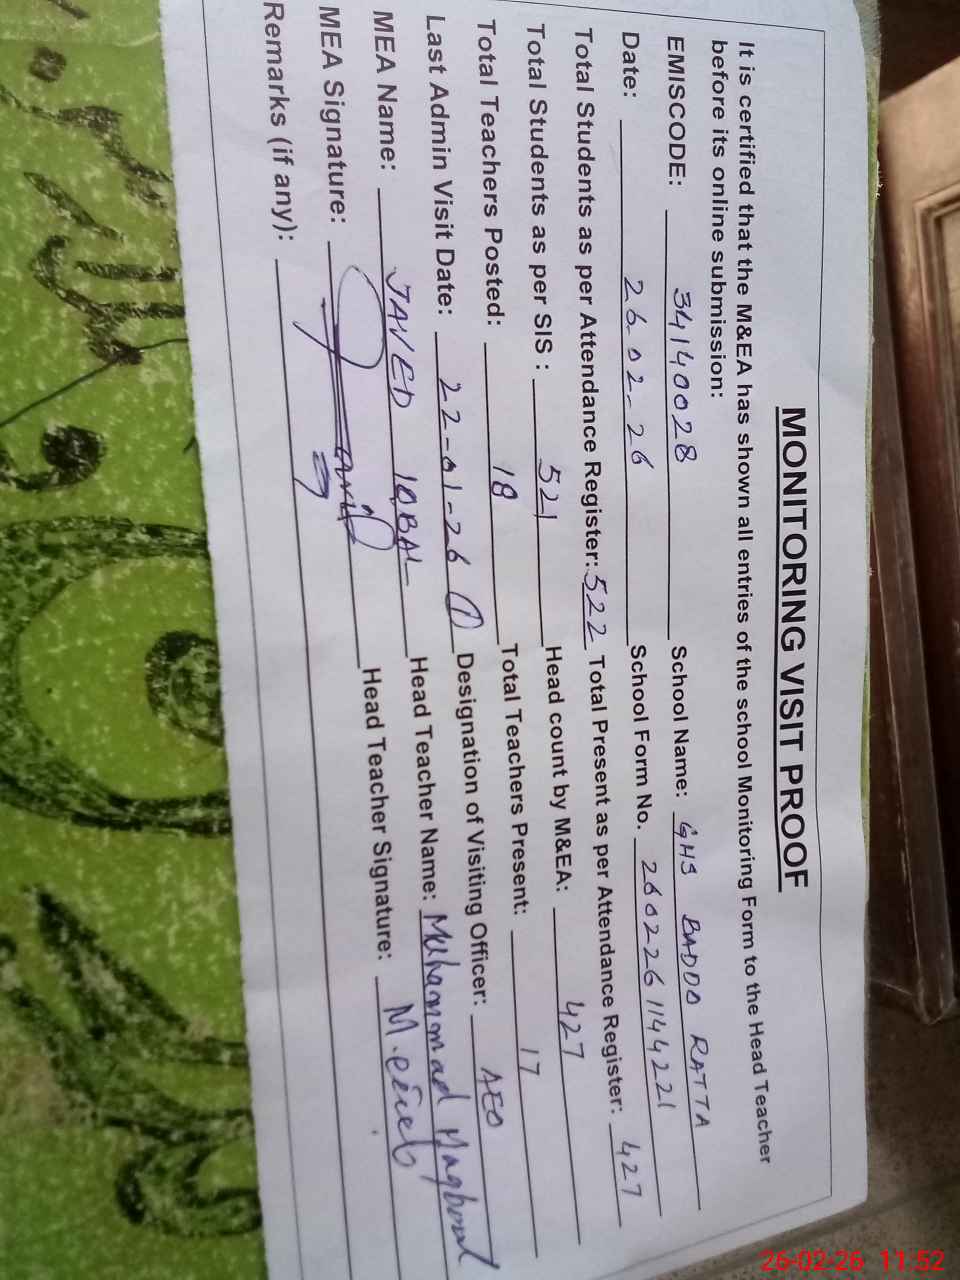 MONITORING VISIT PROOF
It is certified that the M&EA has shown all entries of the school Monitoring Form to the Head Teacher
before its online submission:
EMISCODE: 34140028 School Name: GHS BADDO RATTA
Date: 26.02-26 School Form No. 260226114221
Total Students as per Attendance Register: 522 Total Present as per Attendance Register: 427
Total Students as per SIS : 521 Head count by M&EA: 427
Total Teachers Posted: 18 Total Teachers Present: 17
Last Admin Visit Date: 22-01-26 ① Designation of Visiting Officer: AEO
MEA Name: JAVED IQBAL Head Teacher Name: Muhammad Maqbool
MEA Signature: Head Teacher Signature:
Remarks (if any):
26-02-26 11:52